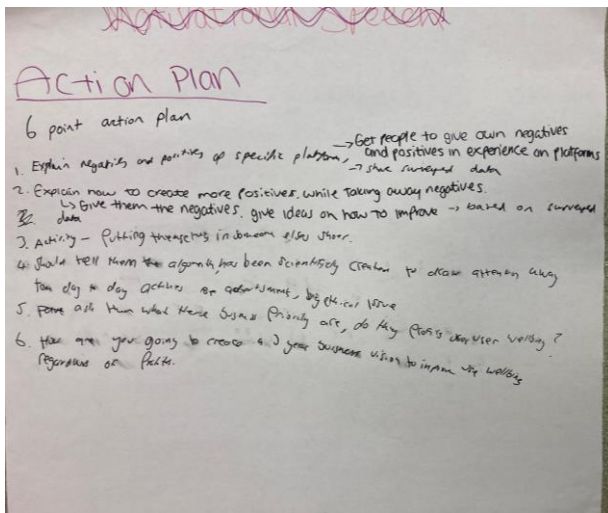 Motivational Speech
Action Plan
6 point action plan
1. Explain negatives and positives of specific platform, → Get people to give own negatives
and positives in experience on platforms
→ share surveyed data
2. Explain how to create more positives. while taking away negatives.
↳ Give them the negatives. give ideas on how to improve → based on surveyed
data
3. Activity - Putting themselves in someone elses shoes.
4. Should tell them algorithm has been scientifically to draw attention away
day to day advertisement, big ethical issue
5. ask them what there business Priority are, do they over user ?
6. How are you going to create a 3 year business vision to wellbeing
regardless of Profits.